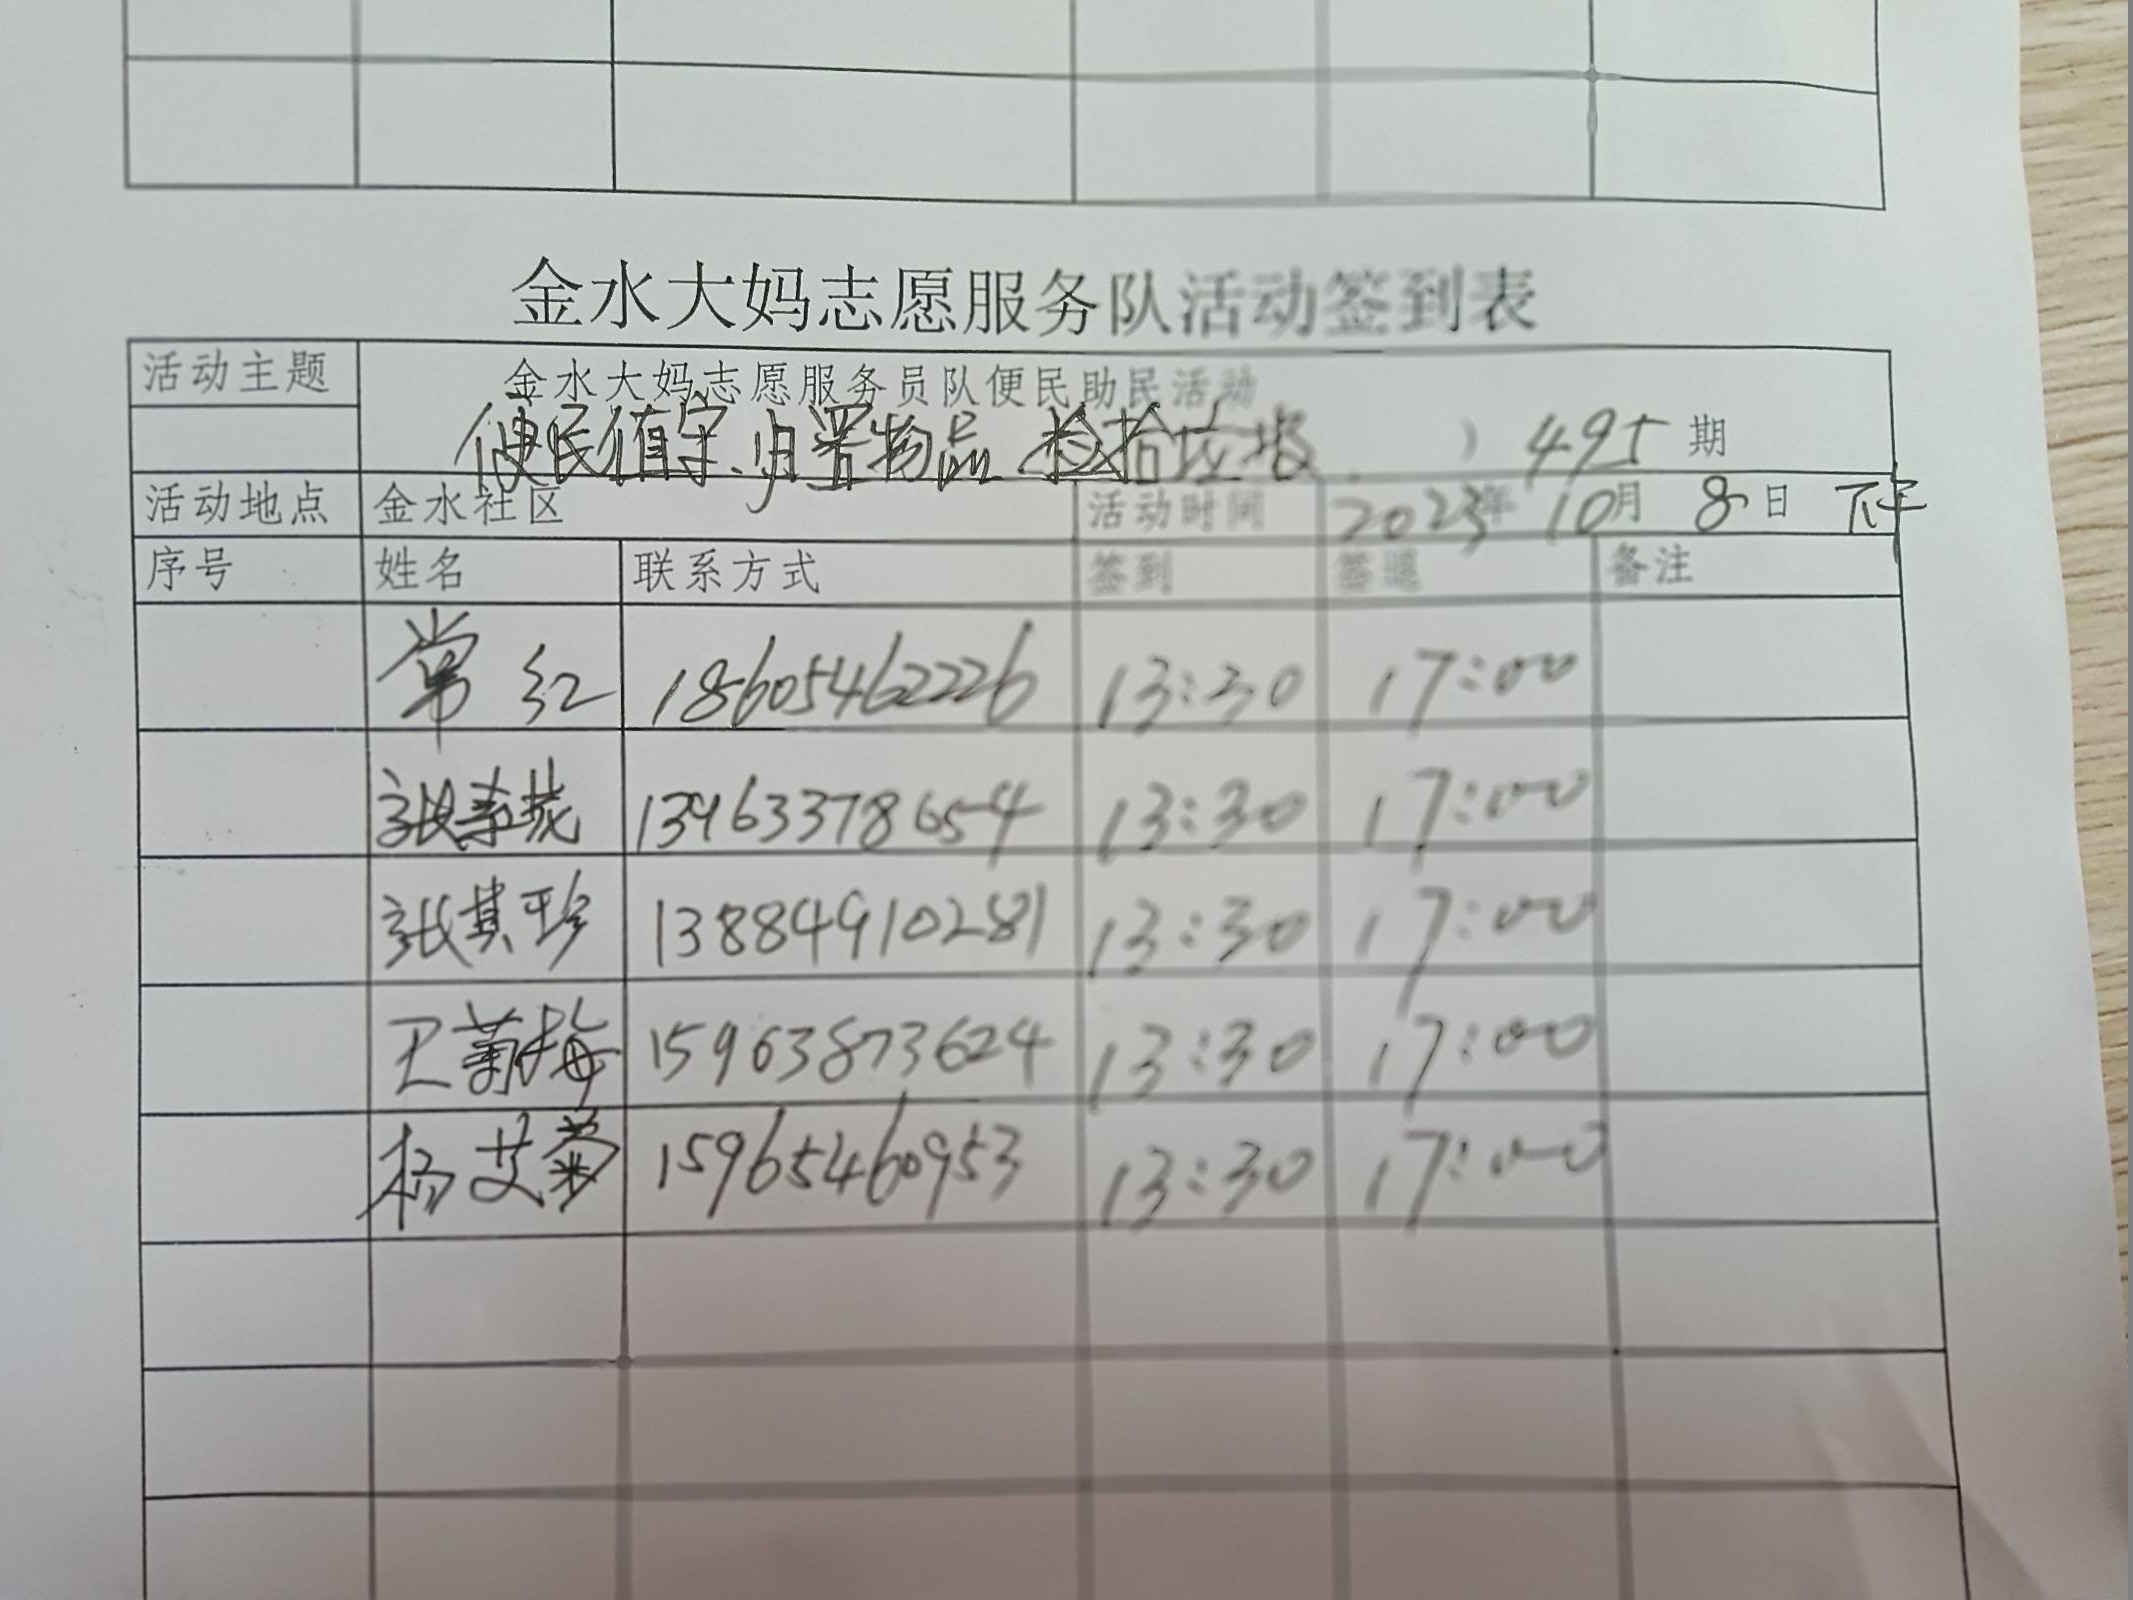 金水大妈志愿服务队活动签到表
活动主题 金水大妈志愿服务员队便民助民活动
便民值守、归置物品 捡拾垃圾 ） 495 期
活动地点 金水社区 活动时间 2023年 10月 8日 下午
序号 姓名 联系方式 签到 签退 备注
常红 18605462226 13:30 17:00
张 13963378654 13:30 17:00
张其珍 13884910281 13:30 17:00
王菊梅 15963873624 13:30 17:00
杨艾菊 15965460953 13:30 17:00